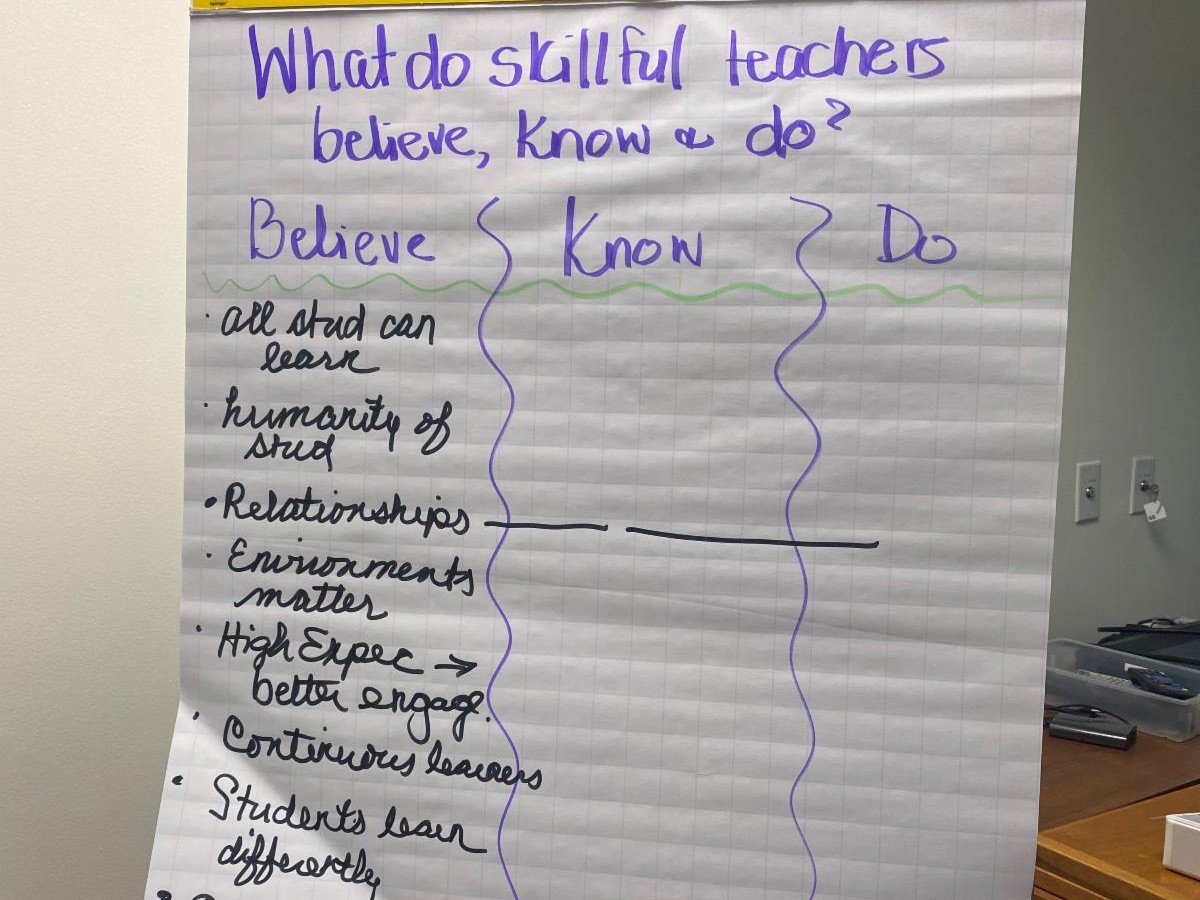 What do skillful teachers
believe, know & do?
Believe Know Do
· all stud can
learn
· humanity of
stud
• Relationships
· Environments
matter
· High Expec →
better engage.
· Continuous learners
· Students learn
differently